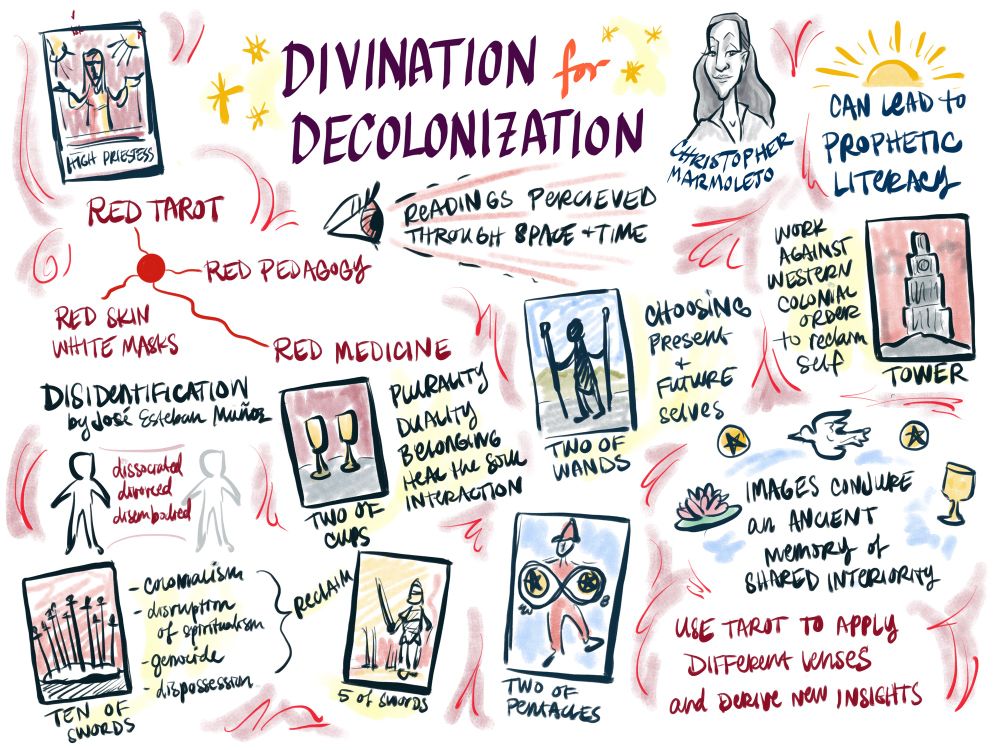 HIGH PRIESTESS
DIVINATION for
DECOLONIZATION
CHRISTOPHER
MARMOLEJO
CAN LEAD to
PROPHETIC
LITERACY
READINGS PERCIEVED
THROUGH SPACE + TIME
RED TAROT
RED PEDAGOGY
RED SKIN
WHITE MASKS
RED MEDICINE
WORK
AGAINST
WESTERN
COLONIAL
ORDER
to reclaim
self
TOWER
CHOOSING
Present
+
FUTURE
selves
TWO OF
WANDS
DISIDENTIFICATION
by José Esteban Muñoz
dissociated
divorced
disembodied
PLURALITY
DUALITY
BELONGING
HEAL THE SOUL
INTERACTION
TWO OF
CUPS
IMAGES CONJURE
an ANCIENT
memory of
SHARED INTERIORITY
- colonialism
- disruption
of spiritualism
- genocide
- dispossession
RECLAIM
TEN OF
SWORDS
5 of SWORDS
TWO OF
PENTACLES
USE TAROT TO APPLY
DIFFERENT LENSES
and DERIVE NEW INSIGHTS